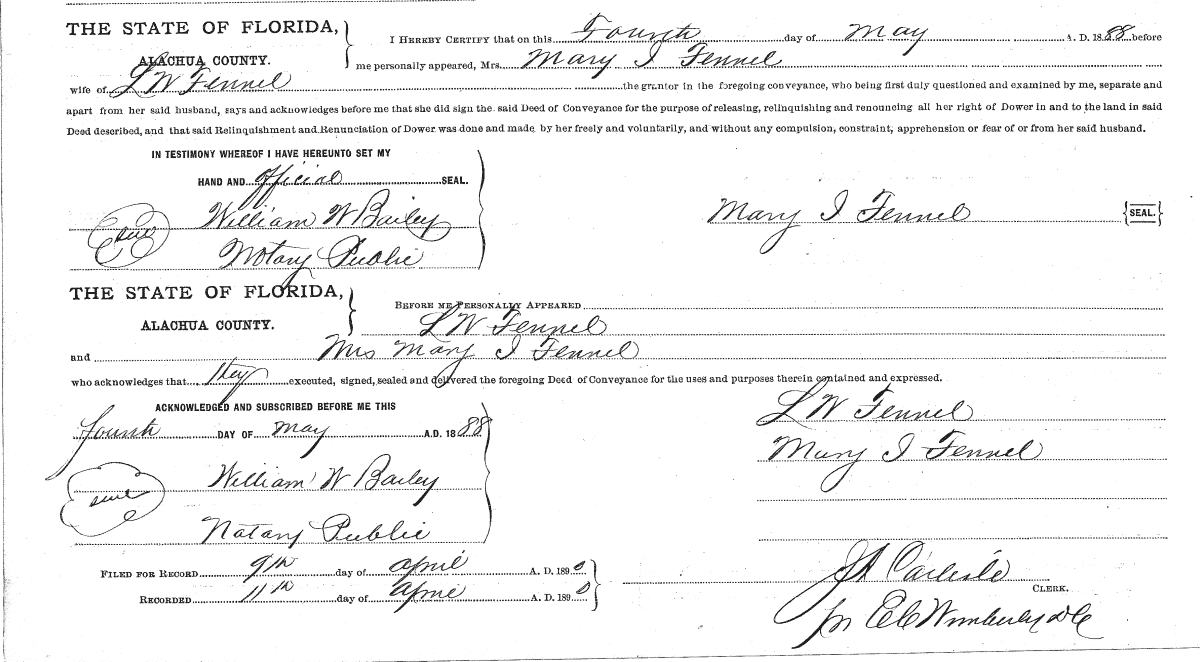 THE STATE OF FLORIDA,
ALACHUA COUNTY.
I HEREBY CERTIFY that on this Fourth day of May A. D. 1888 before
me personally appeared, Mrs. Mary I Fennel
wife of L W Fennel the grantor in the foregoing conveyance, who being first duly questioned and examined by me, separate and
apart from her said husband, says and acknowledges before me that she did sign the said Deed of Conveyance for the purpose of releasing, relinquishing and renouncing all her right of Dower in and to the land in said
Deed described, and that said Relinquishment and Renunciation of Dower was done and made by her freely and voluntarily, and without any compulsion, constraint, apprehension or fear of or from her said husband.
IN TESTIMONY WHEREOF I HAVE HEREUNTO SET MY
HAND AND official SEAL.
seal William W Bailey
Notary Public
Mary I Fennel {SEAL.}
THE STATE OF FLORIDA,
ALACHUA COUNTY.
BEFORE ME PERSONALLY APPEARED
L W Fennel
and Mrs Mary I Fennel
who acknowledges that they executed, signed, sealed and delivered the foregoing Deed of Conveyance for the uses and purposes therein contained and expressed.
ACKNOWLEDGED AND SUBSCRIBED BEFORE ME THIS
fourth DAY OF May A.D. 1888
seal William W Bailey
Notary Public
L W Fennel
Mary I Fennel
FILED FOR RECORD 9th day of April A. D. 1890
RECORDED 11th day of April A. D. 1890
J A Carlisle
CLERK.
pr E C Wimberly D C